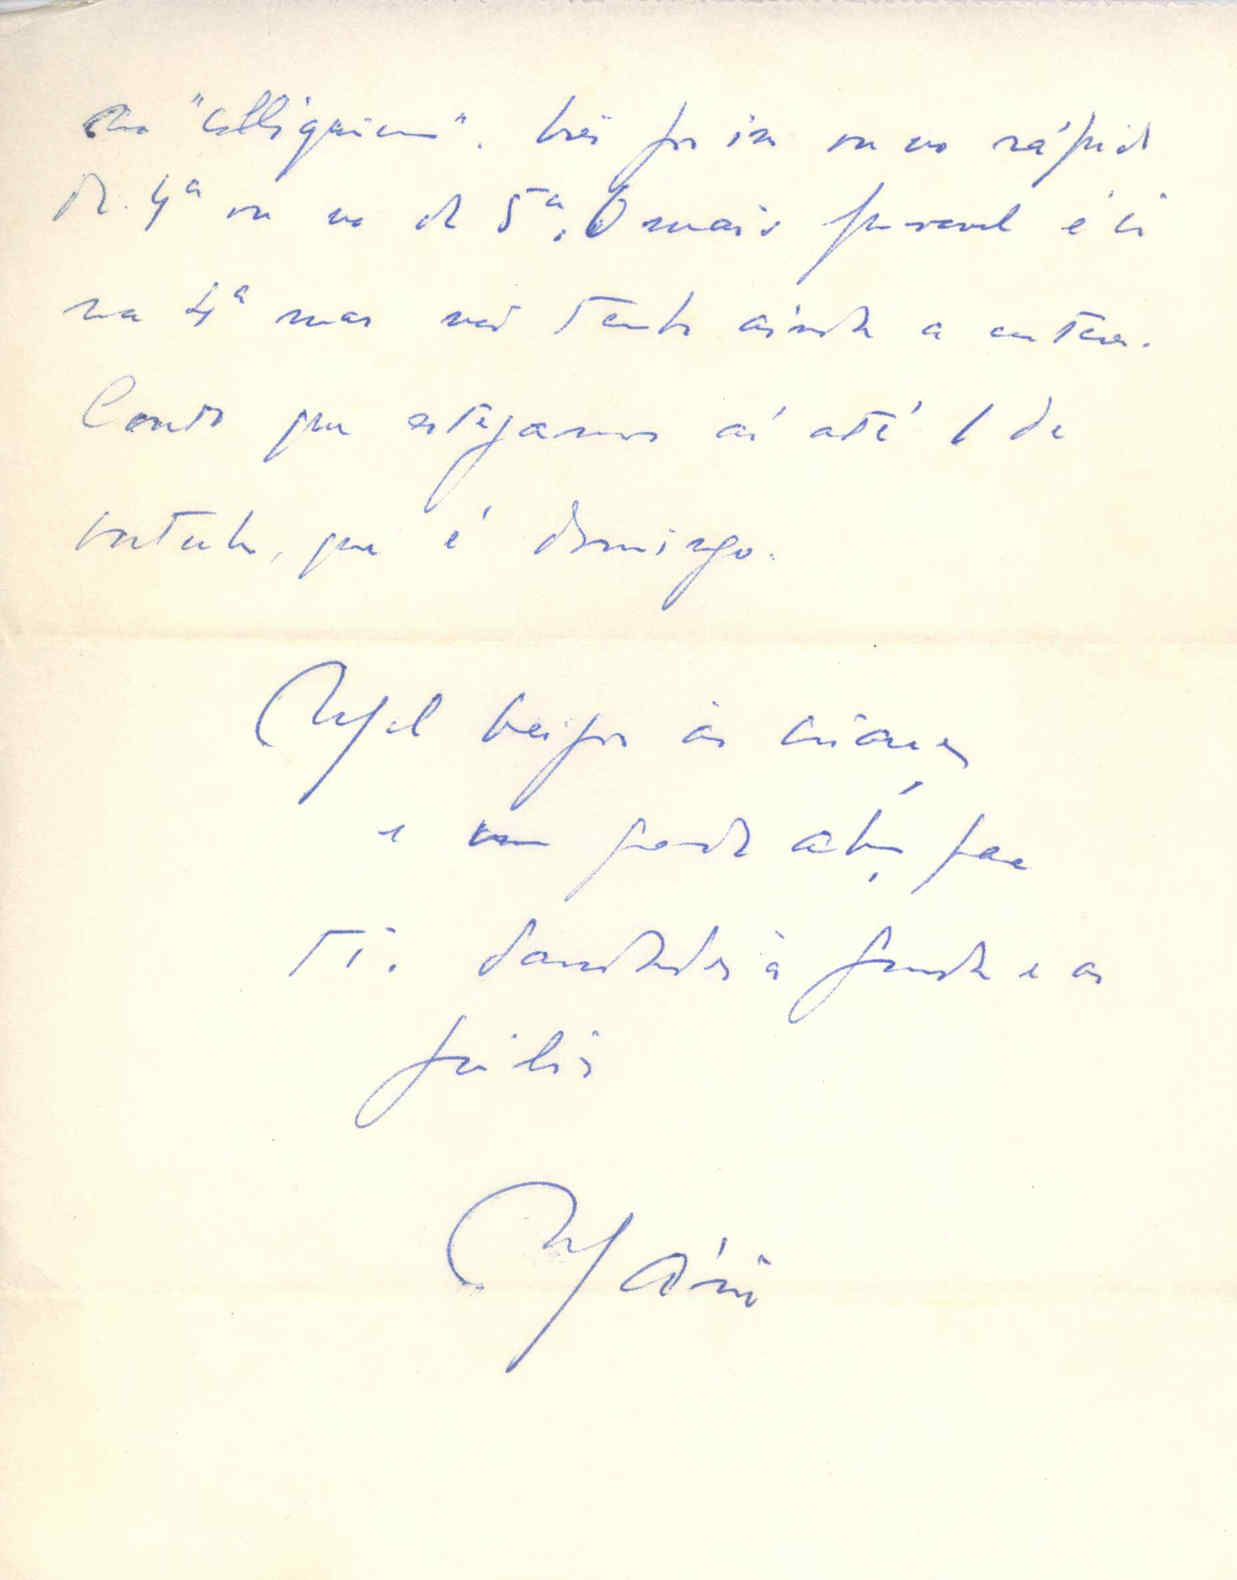 no "colloquium". Irei por isso ou no rápido
da 4ª ou no da 5ª. O mais provavel é ir
na 4ª mas não tenho ainda a certeza.
Conto que estejamos aí até 1 de
outubro, que é domingo.
Mil beijos às crianças
e um grande abraço para
ti. Saudades à
Júlia
Mário